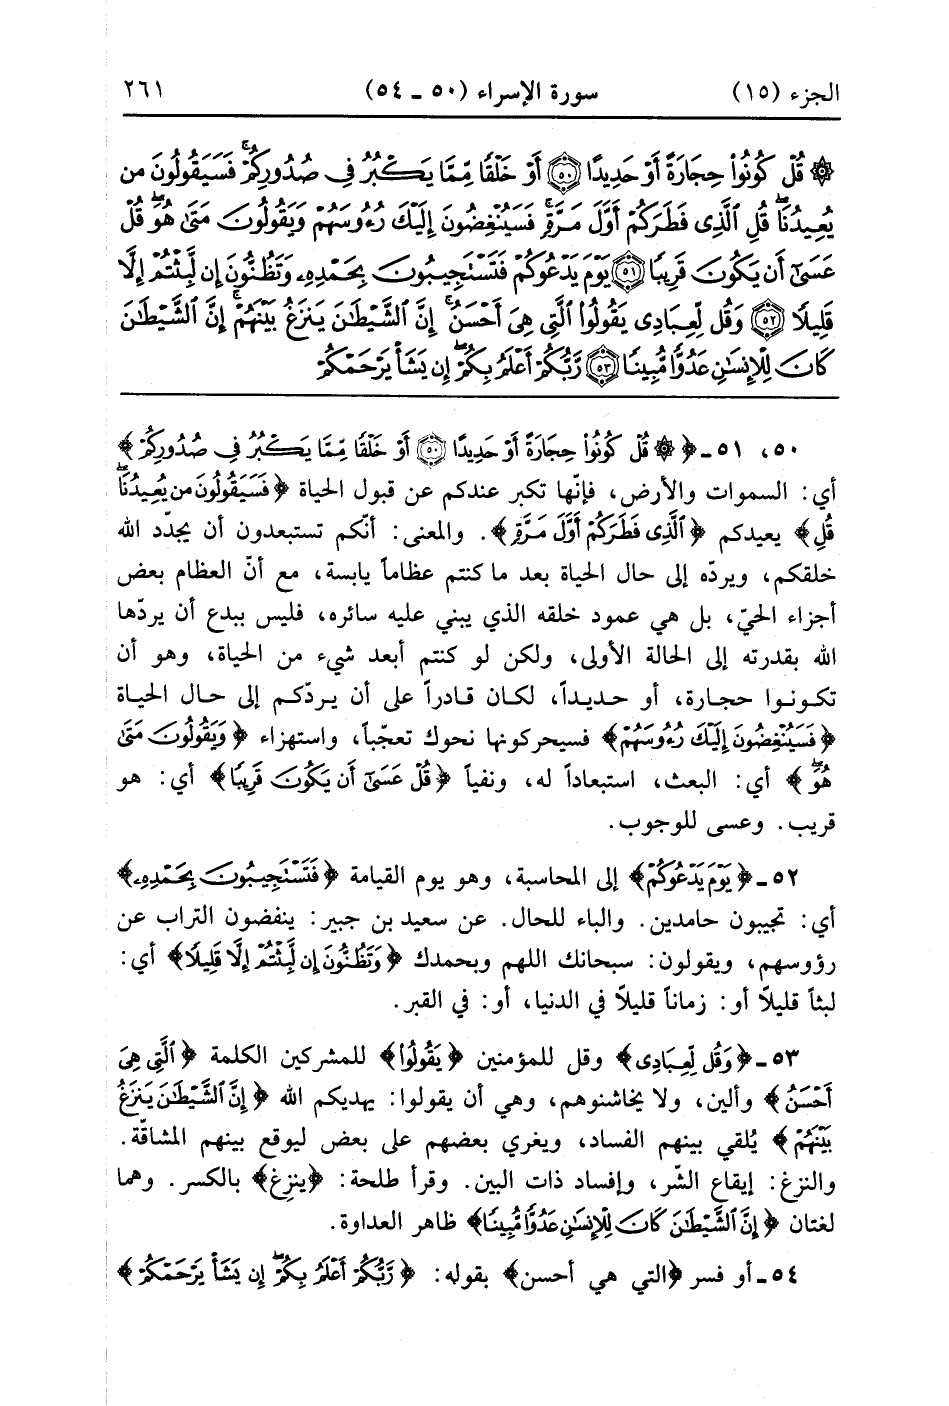 الجزء (١٥) سورة الإسراء (٥٠ ـ ٥٤) ٢٦١
۞ قُلْ كُونُوا۟ حِجَارَةً أَوْ حَدِيدًا ﴿٥٠﴾ أَوْ خَلْقًا مِّمَّا يَكْبُرُ فِى صُدُورِكُمْ ۚ فَسَيَقُولُونَ مَن
يُعِيدُنَا ۖ قُلِ ٱلَّذِى فَطَرَكُمْ أَوَّلَ مَرَّةٍ ۚ فَسَيُنْغِضُونَ إِلَيْكَ رُءُوسَهُمْ وَيَقُولُونَ مَتَىٰ هُوَ ۖ قُلْ
عَسَىٰٓ أَن يَكُونَ قَرِيبًا ﴿٥١﴾ يَوْمَ يَدْعُوكُمْ فَتَسْتَجِيبُونَ بِحَمْدِهِۦ وَتَظُنُّونَ إِن لَّبِثْتُمْ إِلَّا
قَلِيلًا ﴿٥٢﴾ وَقُل لِّعِبَادِى يَقُولُوا۟ ٱلَّتِى هِىَ أَحْسَنُ ۚ إِنَّ ٱلشَّيْطَٰنَ يَنزَغُ بَيْنَهُمْ ۚ إِنَّ ٱلشَّيْطَٰنَ
كَانَ لِلْإِنسَٰنِ عَدُوًّا مُّبِينًا ﴿٥٣﴾ رَّبُّكُمْ أَعْلَمُ بِكُمْ ۖ إِن يَشَأْ يَرْحَمْكُمْ
٥٠، ٥١ـ ﴿۞ قُلْ كُونُوا۟ حِجَارَةً أَوْ حَدِيدًا ﴿٥٠﴾ أَوْ خَلْقًا مِّمَّا يَكْبُرُ فِى صُدُورِكُمْ﴾
أي: السموات والأرض، فإنّها تكبر عندكم عن قبول الحياة ﴿فَسَيَقُولُونَ مَن يُعِيدُنَا ۖ
قُلِ﴾ يعيدكم ﴿ٱلَّذِى فَطَرَكُمْ أَوَّلَ مَرَّةٍ﴾. والمعنى: أنّكم تستبعدون أن يجدّد الله
خلقكم، ويردّه إلى حال الحياة بعد ما كنتم عظاماً يابسة، مع أنّ العظام بعض
أجزاء الحيّ، بل هي عمود خلقه الذي يبني عليه سائره، فليس ببدع أن يردّها
الله بقدرته إلى الحالة الأولى، ولكن لو كنتم أبعد شيء من الحياة، وهو أن
تكونوا حجارة، أو حديداً، لكان قادراً على أن يردّكم إلى حال الحياة
﴿فَسَيُنْغِضُونَ إِلَيْكَ رُءُوسَهُمْ﴾ فسيحركونها نحوك تعجّباً، واستهزاء ﴿وَيَقُولُونَ مَتَىٰ
هُوَ ۖ﴾ أي: البعث، استبعاداً له، ونفياً ﴿قُلْ عَسَىٰٓ أَن يَكُونَ قَرِيبًا﴾ أي: هو
قريب. وعسى للوجوب.
٥٢ـ ﴿يَوْمَ يَدْعُوكُمْ﴾ إلى المحاسبة، وهو يوم القيامة ﴿فَتَسْتَجِيبُونَ بِحَمْدِهِۦ﴾
أي: تجيبون حامدين. والباء للحال. عن سعيد بن جبير: ينفضون التراب عن
رؤوسهم، ويقولون: سبحانك اللهم وبحمدك ﴿وَتَظُنُّونَ إِن لَّبِثْتُمْ إِلَّا قَلِيلًا﴾ أي:
لبثاً قليلاً أو: زماناً قليلاً في الدنيا، أو: في القبر.
٥٣ـ ﴿وَقُل لِّعِبَادِى﴾ وقل للمؤمنين ﴿يَقُولُوا۟﴾ للمشركين الكلمة ﴿ٱلَّتِى هِىَ
أَحْسَنُ﴾ وألين، ولا يخاشنوهم، وهي أن يقولوا: يهديكم الله ﴿إِنَّ ٱلشَّيْطَٰنَ يَنزَغُ
بَيْنَهُمْ﴾ يُلقي بينهم الفساد، ويغري بعضهم على بعض ليوقع بينهم المشاقّة.
والنزغ: إيقاع الشّر، وإفساد ذات البين. وقرأ طلحة: ﴿ينزِغ﴾ بالكسر. وهما
لغتان ﴿إِنَّ ٱلشَّيْطَٰنَ كَانَ لِلْإِنسَٰنِ عَدُوًّا مُّبِينًا﴾ ظاهر العداوة.
٥٤ـ أو فسر ﴿التي هي أحسن﴾ بقوله: ﴿رَّبُّكُمْ أَعْلَمُ بِكُمْ ۖ إِن يَشَأْ يَرْحَمْكُمْ﴾